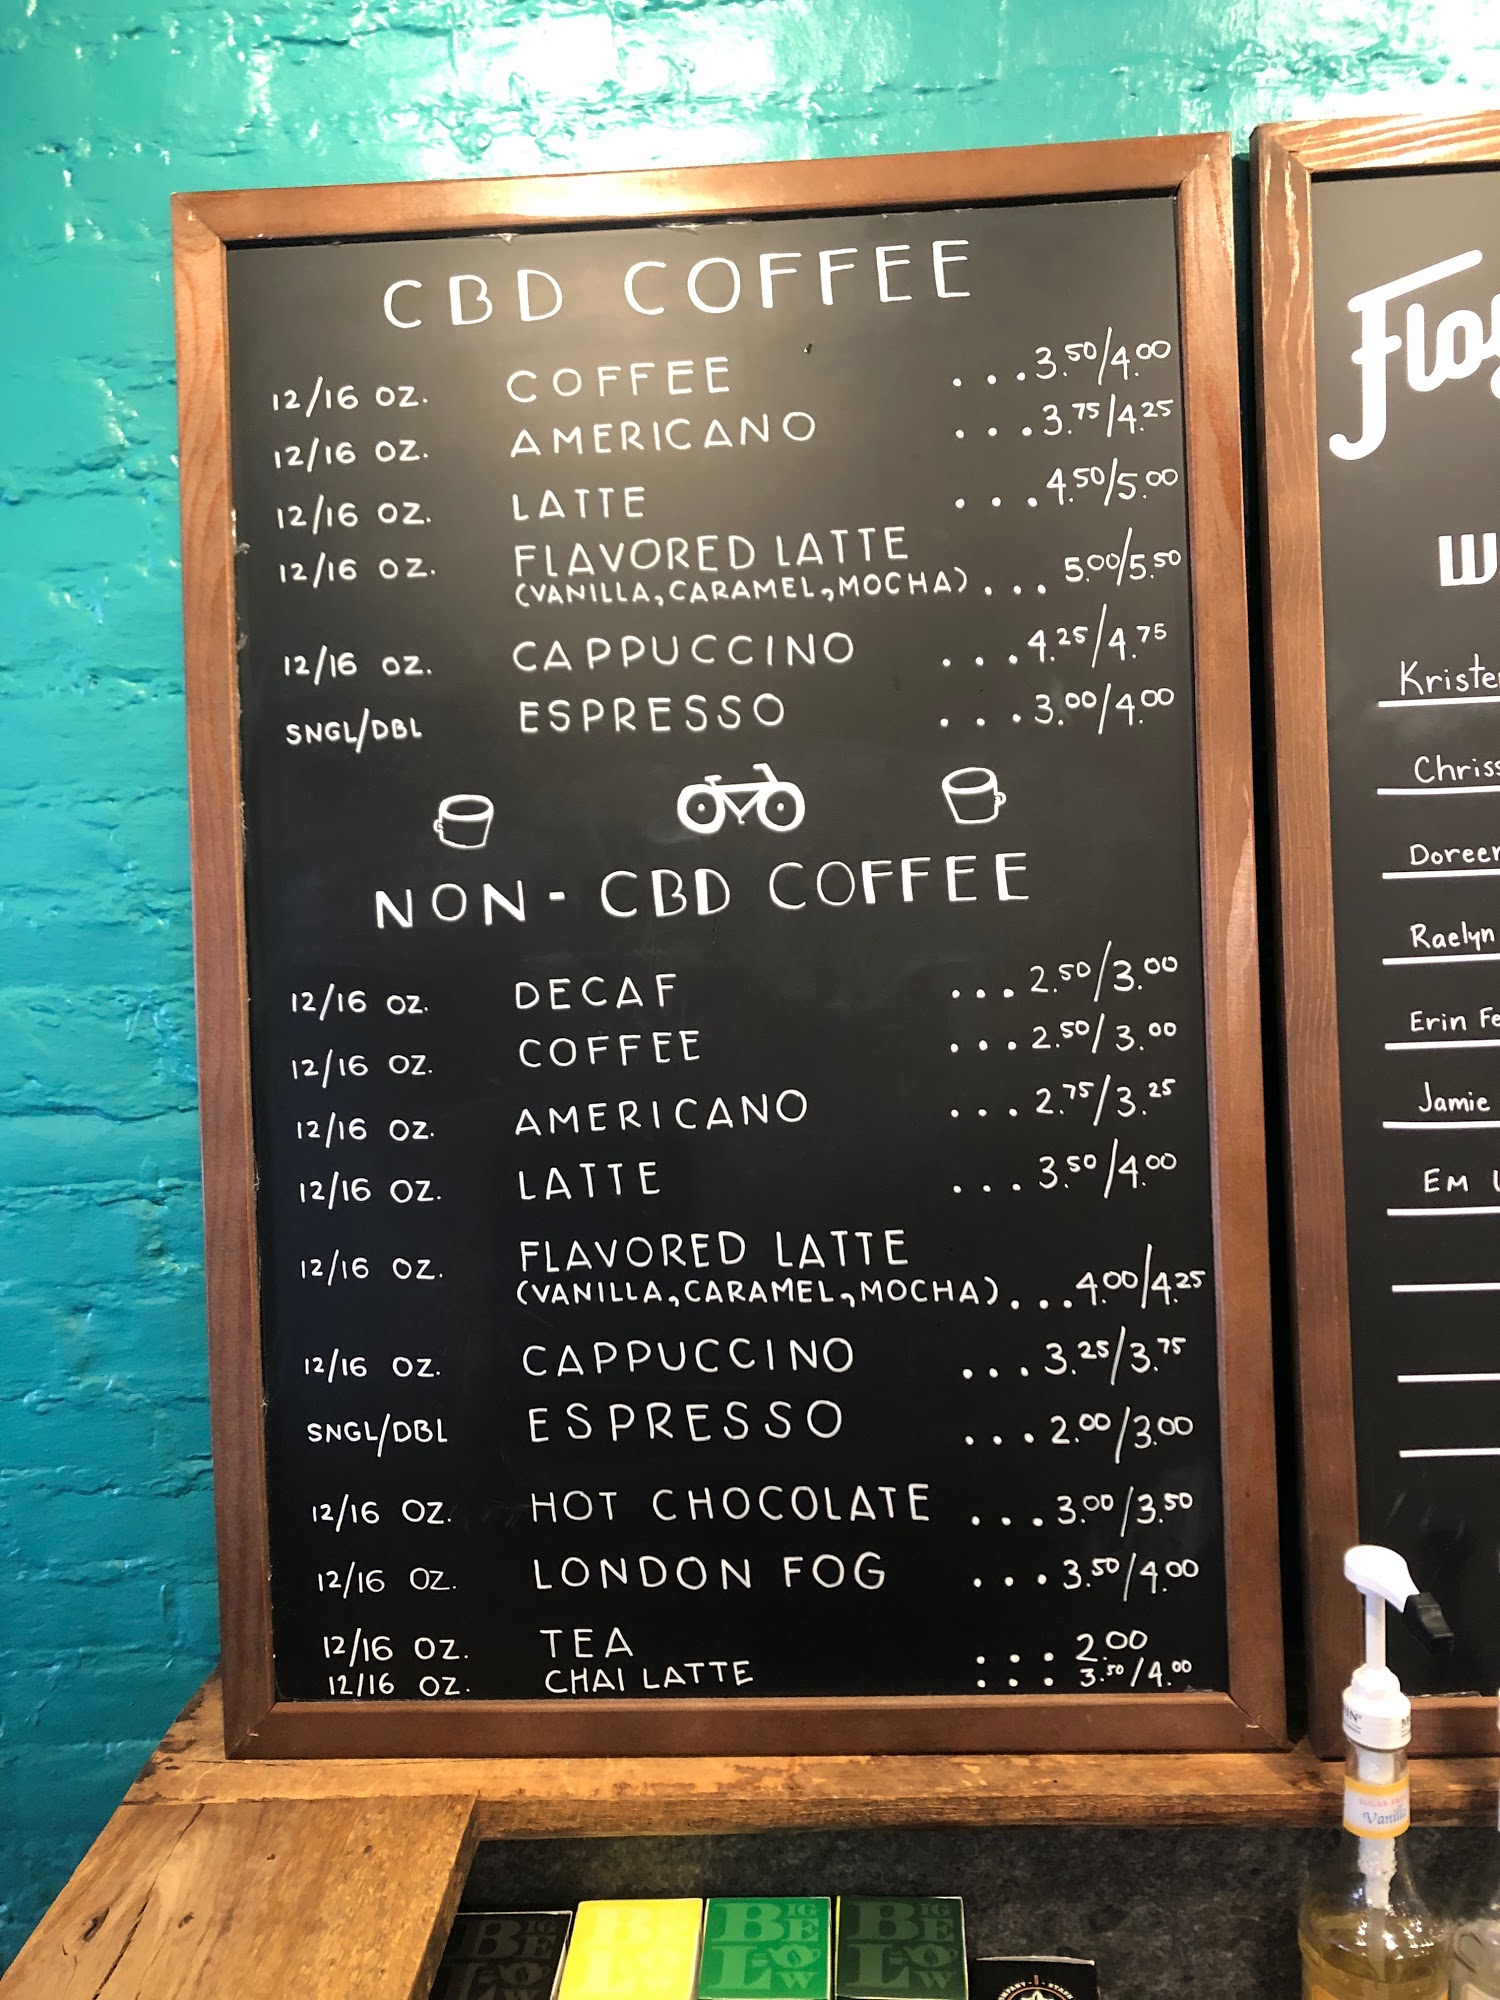 CBD COFFEE
12/16 OZ. COFFEE ...3.50/4.00
12/16 OZ. AMERICANO ...3.75/4.25
12/16 OZ. LATTE ...4.50/5.00
12/16 OZ. FLAVORED LATTE
(VANILLA, CARAMEL, MOCHA)... 5.00/5.50
12/16 OZ. CAPPUCCINO ...4.25/4.75
SNGL/DBL ESPRESSO ...3.00/4.00
NON-CBD COFFEE
12/16 OZ. DECAF ...2.50/3.00
12/16 OZ. COFFEE ...2.50/3.00
12/16 OZ. AMERICANO ...2.75/3.25
12/16 OZ. LATTE ...3.50/4.00
12/16 OZ. FLAVORED LATTE
(VANILLA, CARAMEL, MOCHA)...4.00/4.25
12/16 OZ. CAPPUCCINO ...3.25/3.75
SNGL/DBL ESPRESSO ...2.00/3.00
12/16 OZ. HOT CHOCOLATE ...3.00/3.50
12/16 OZ. LONDON FOG ...3.50/4.00
12/16 OZ. TEA ... 2.00
12/16 OZ. CHAI LATTE ... 3.50/4.00
Kristen
Chriss
Doreen
Raelyn
Erin Fe
Jamie
EM
Vanilla
BIGELOW
BIGELOW
BIGELOW
BIGELOW